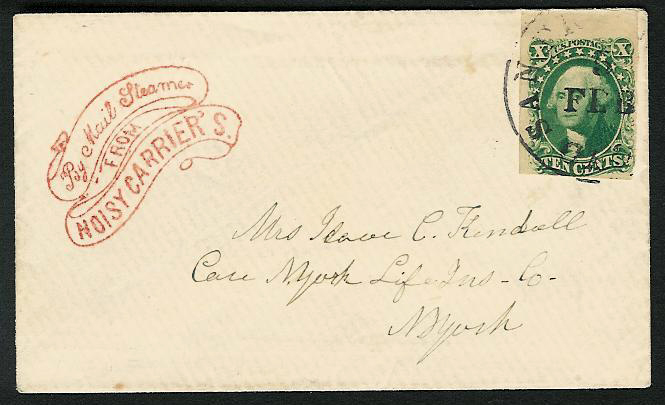 By Mail Steamer
FROM
NOISY CARRIER'S.
X U.S. POSTAGE X
TEN CENTS
SAN
5
FEB
Mrs Isaac C. Kendall
Care N.York Life Ins-Co-
N York